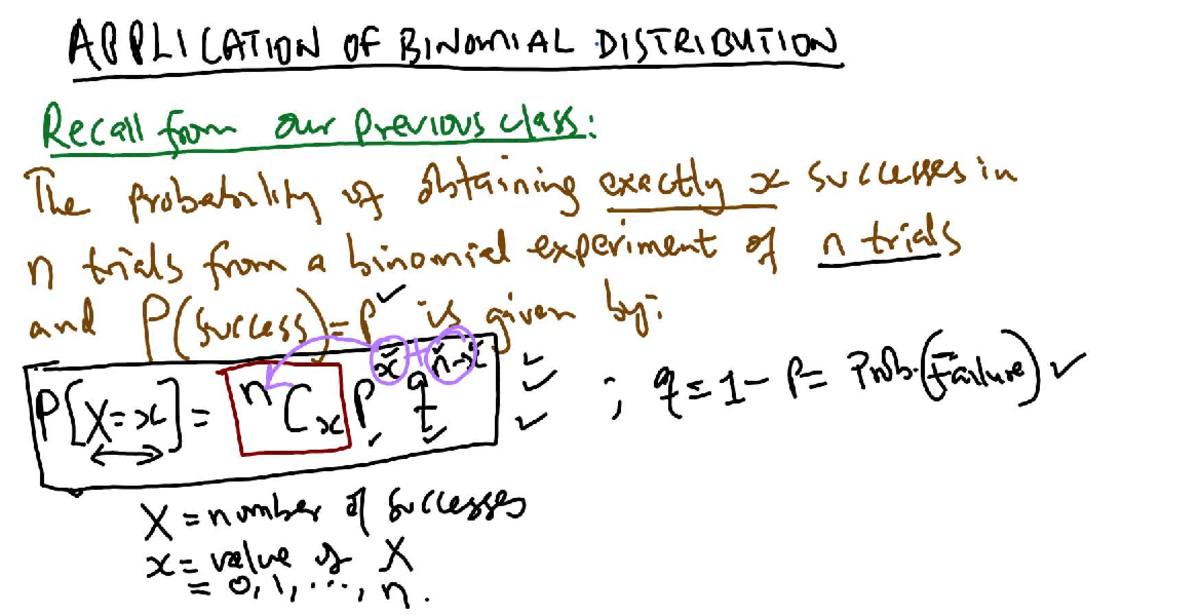 APPLICATION OF BINOMIAL DISTRIBUTION
Recall from our previous class:
The probability of obtaining exactly x successes in
n trials from a binomial experiment of n trials
and P(success)=P is given by:
P[X=x] = ⁿCₓ pˣ qⁿ⁻ˣ ; q = 1 - P = Prob.(Failure)
+
X = number of successes
x = value of X
= 0, 1, ..., n.